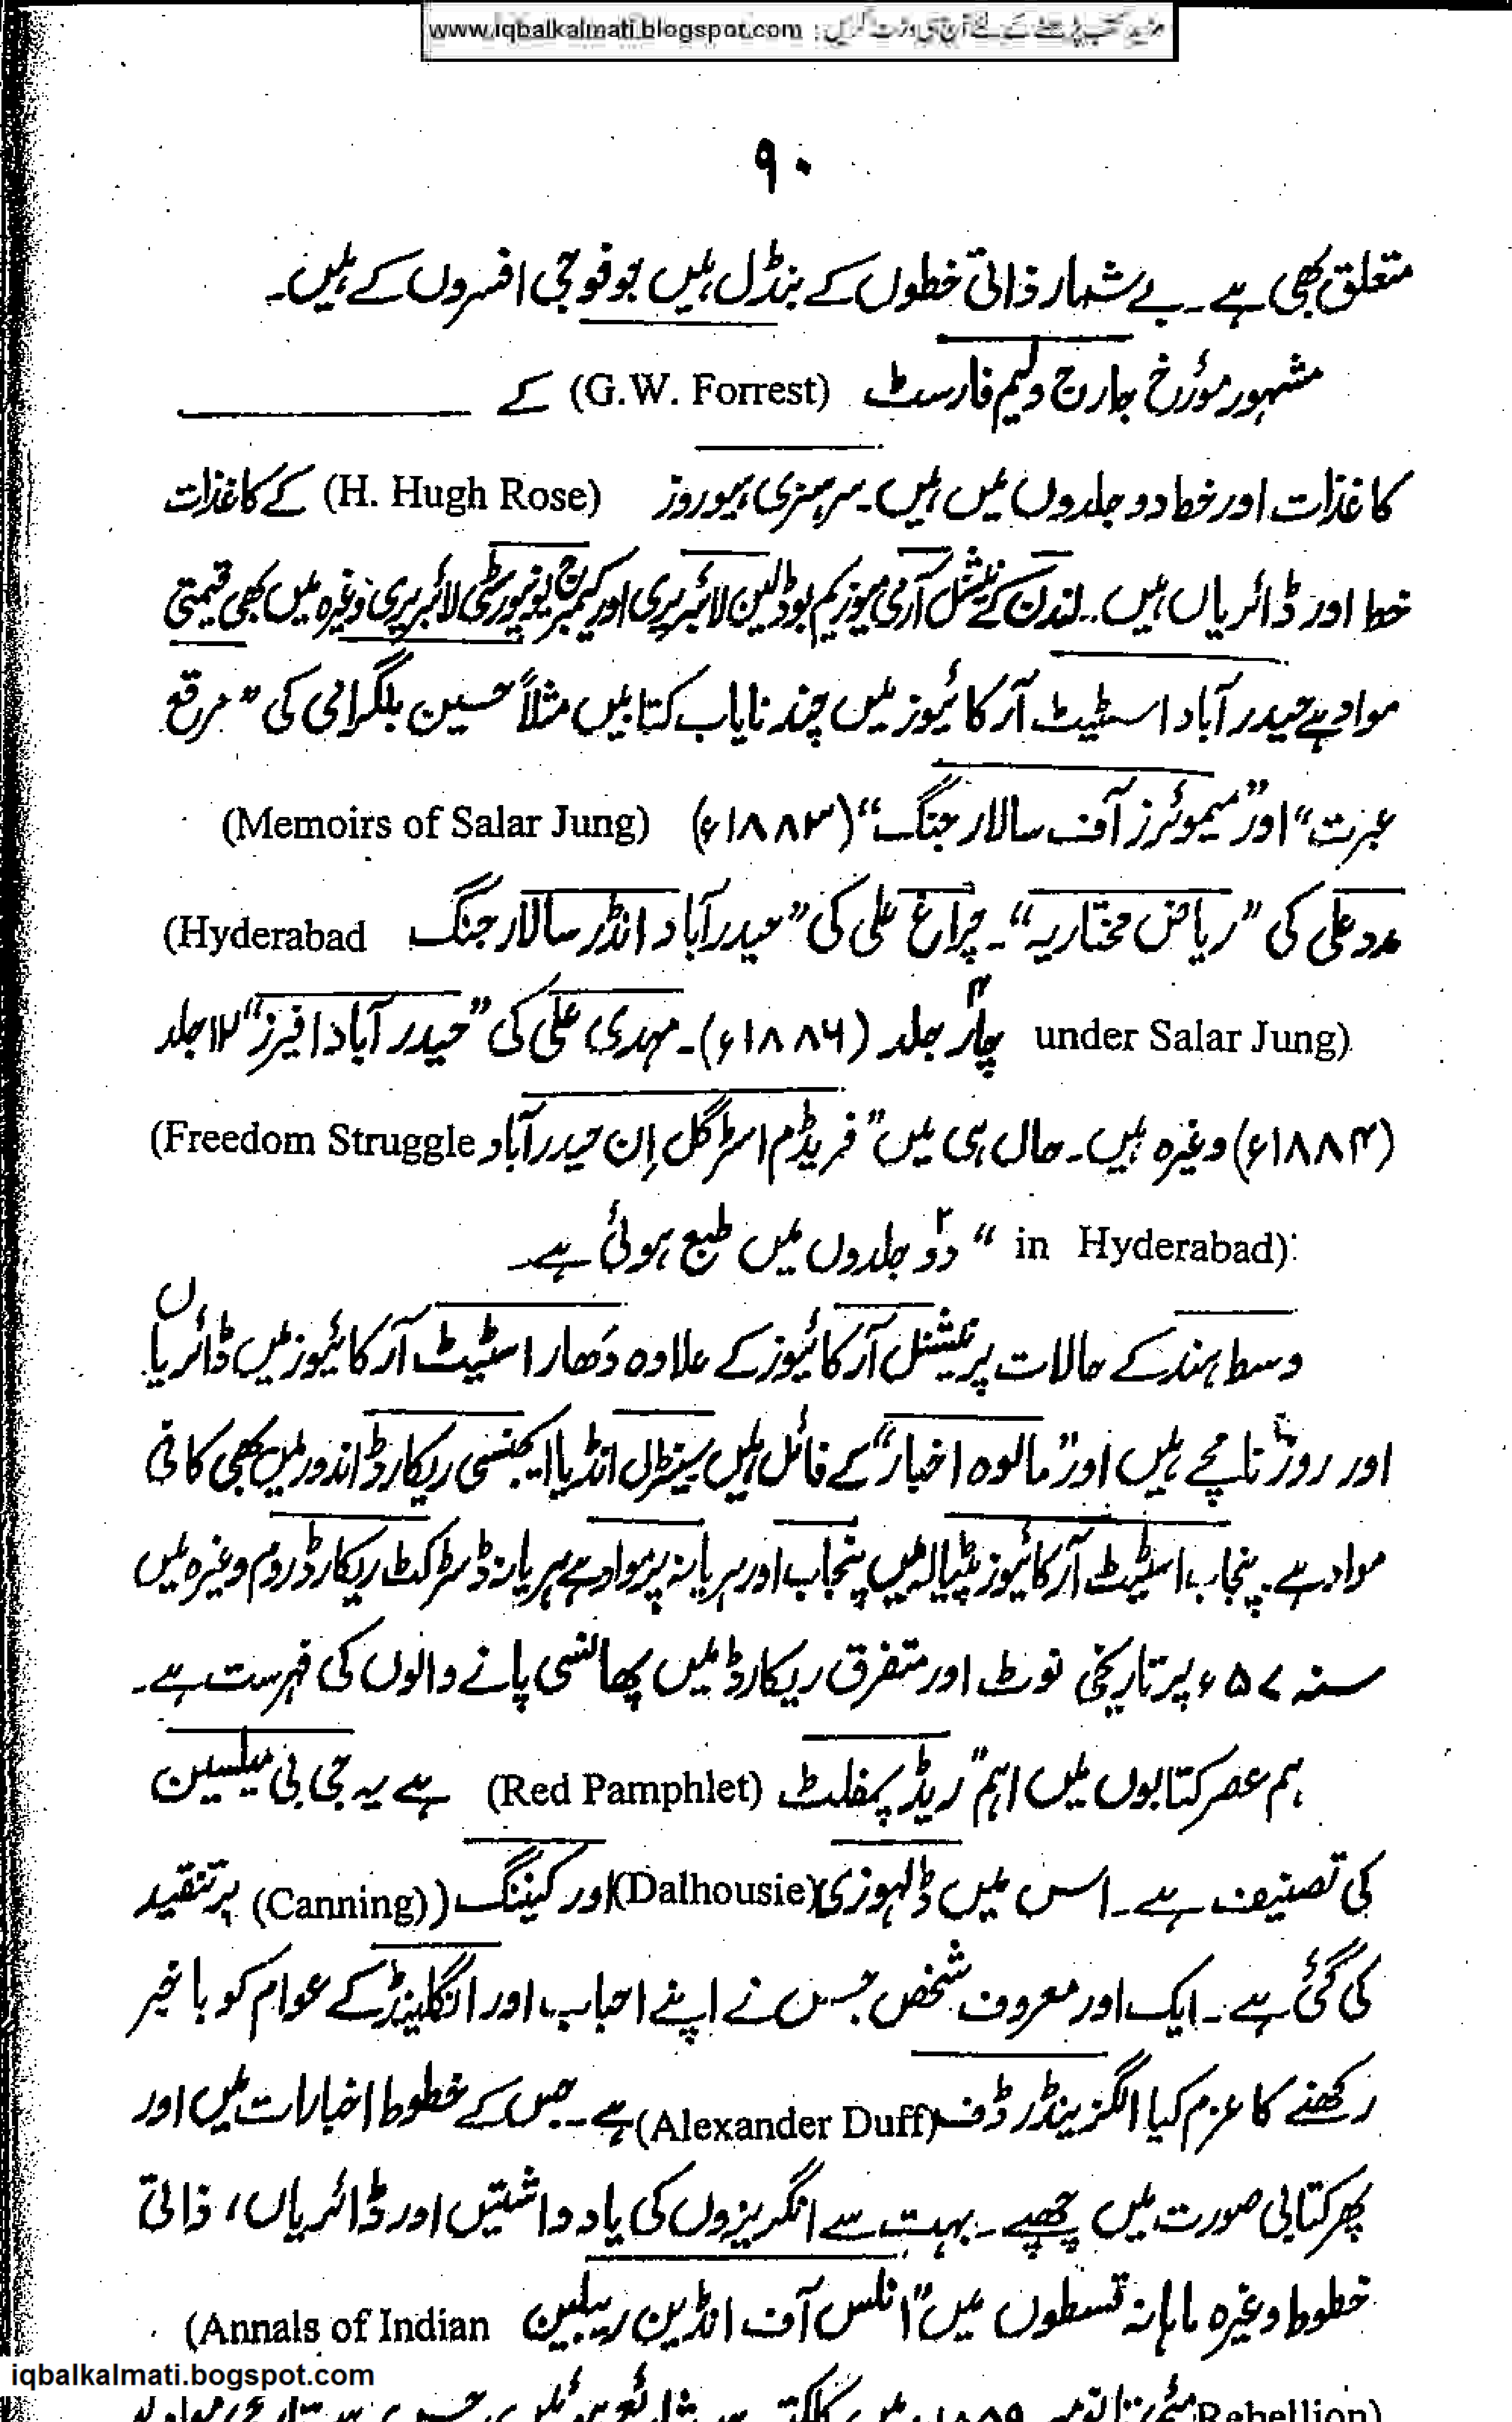 www.iqbalkalmati.blogspot.com : مزید کتب پڑھنے کے لئے آج ہی وزٹ کریں
۹۰
متعلق بھی ہے۔ بے شمار ذاتی خطوں کے بنڈل ہیں جو فوجی افسروں کے ہیں۔
مشہور مؤرخ جارج ولیم فارسٹ (G.W. Forrest) کے
کاغذات اور خط دو جلدوں میں ہیں۔ سر ہنری ہیوروز (H. Hugh Rose) کے کاغذات
خط اور ڈائریاں ہیں۔ لندن کے نیشنل آرمی میوزیم بوڈلین لائبریری اور کیمبرج یونیورسٹی لائبریری وغیرہ میں بھی قیمتی
مواد ہے حیدر آباد اسٹیٹ آرکائیوز میں چند نایاب کتابیں مثلاً حسین بلگرامی کی "مرقع
عبرت" اور "میموئرز آف سالار جنگ" (۱۸۸۳ء) (Memoirs of Salar Jung)
مدد علی کی "ریاض مختاریہ"۔ چراغ علی کی "حیدرآباد انڈر سالار جنگ (Hyderabad
under Salar Jung) چار ۴ جلد (۱۸۸۶ء)۔ مہدی علی کی "حیدر آباد افیرز" ۱۲ جلد
(۱۸۸۴ء) وغیرہ ہیں۔ حال ہی میں "فریڈم اسٹرگل اِن حیدرآباد (Freedom Struggle
in Hyderabad): " دو ۲ جلدوں میں طبع ہوئی ہے۔
وسط ہند کے حالات پر نیشنل آرکائیوز کے علاوہ دھار اسٹیٹ آرکائیوز میں ڈائریاں
اور روز نامچے ہیں اور "مالوہ اخبار" کے فائل ہیں سینٹرل انڈیا ایجنسی ریکارڈ اندور میں بھی کافی
مواد ہے۔ پنجاب اسٹیٹ آرکائیوز پٹیالہ میں پنجاب اور ہریانہ پر مواد ہے ہریانہ ڈسٹرکٹ ریکارڈ روم وغیرہ میں
سنہ ۵۷ء پر تاریخی نوٹ اور متفرق ریکارڈ میں پھانسی پانے والوں کی فہرست ہے۔
ہم عصر کتابوں میں اہم "ریڈ پمفلٹ (Red Pamphlet) ہے یہ جی بی میلسین
کی تصنیف ہے۔ اس میں ڈلہوزی (Dalhousie) اور کیننگ ((Canning) پر تنقید
کی گئی ہے۔ ایک اور معروف شخص جس نے اپنے احباب اور انگلینڈ کے عوام کو باخبر
رکھنے کا عزم کیا الگزینڈر ڈف (Alexander Duff) ہے۔ جس کے خطوط اخبارات میں اور
پھر کتابی صورت میں چھپے۔ بہت سے انگریزوں کی یادداشتیں اور ڈائریاں، ذاتی
خطوط وغیرہ ماہانہ قسطوں میں "انلس آف انڈین ریبلین (Annals of Indian
Rebellion)
iqbalkalmati.bogspot.com